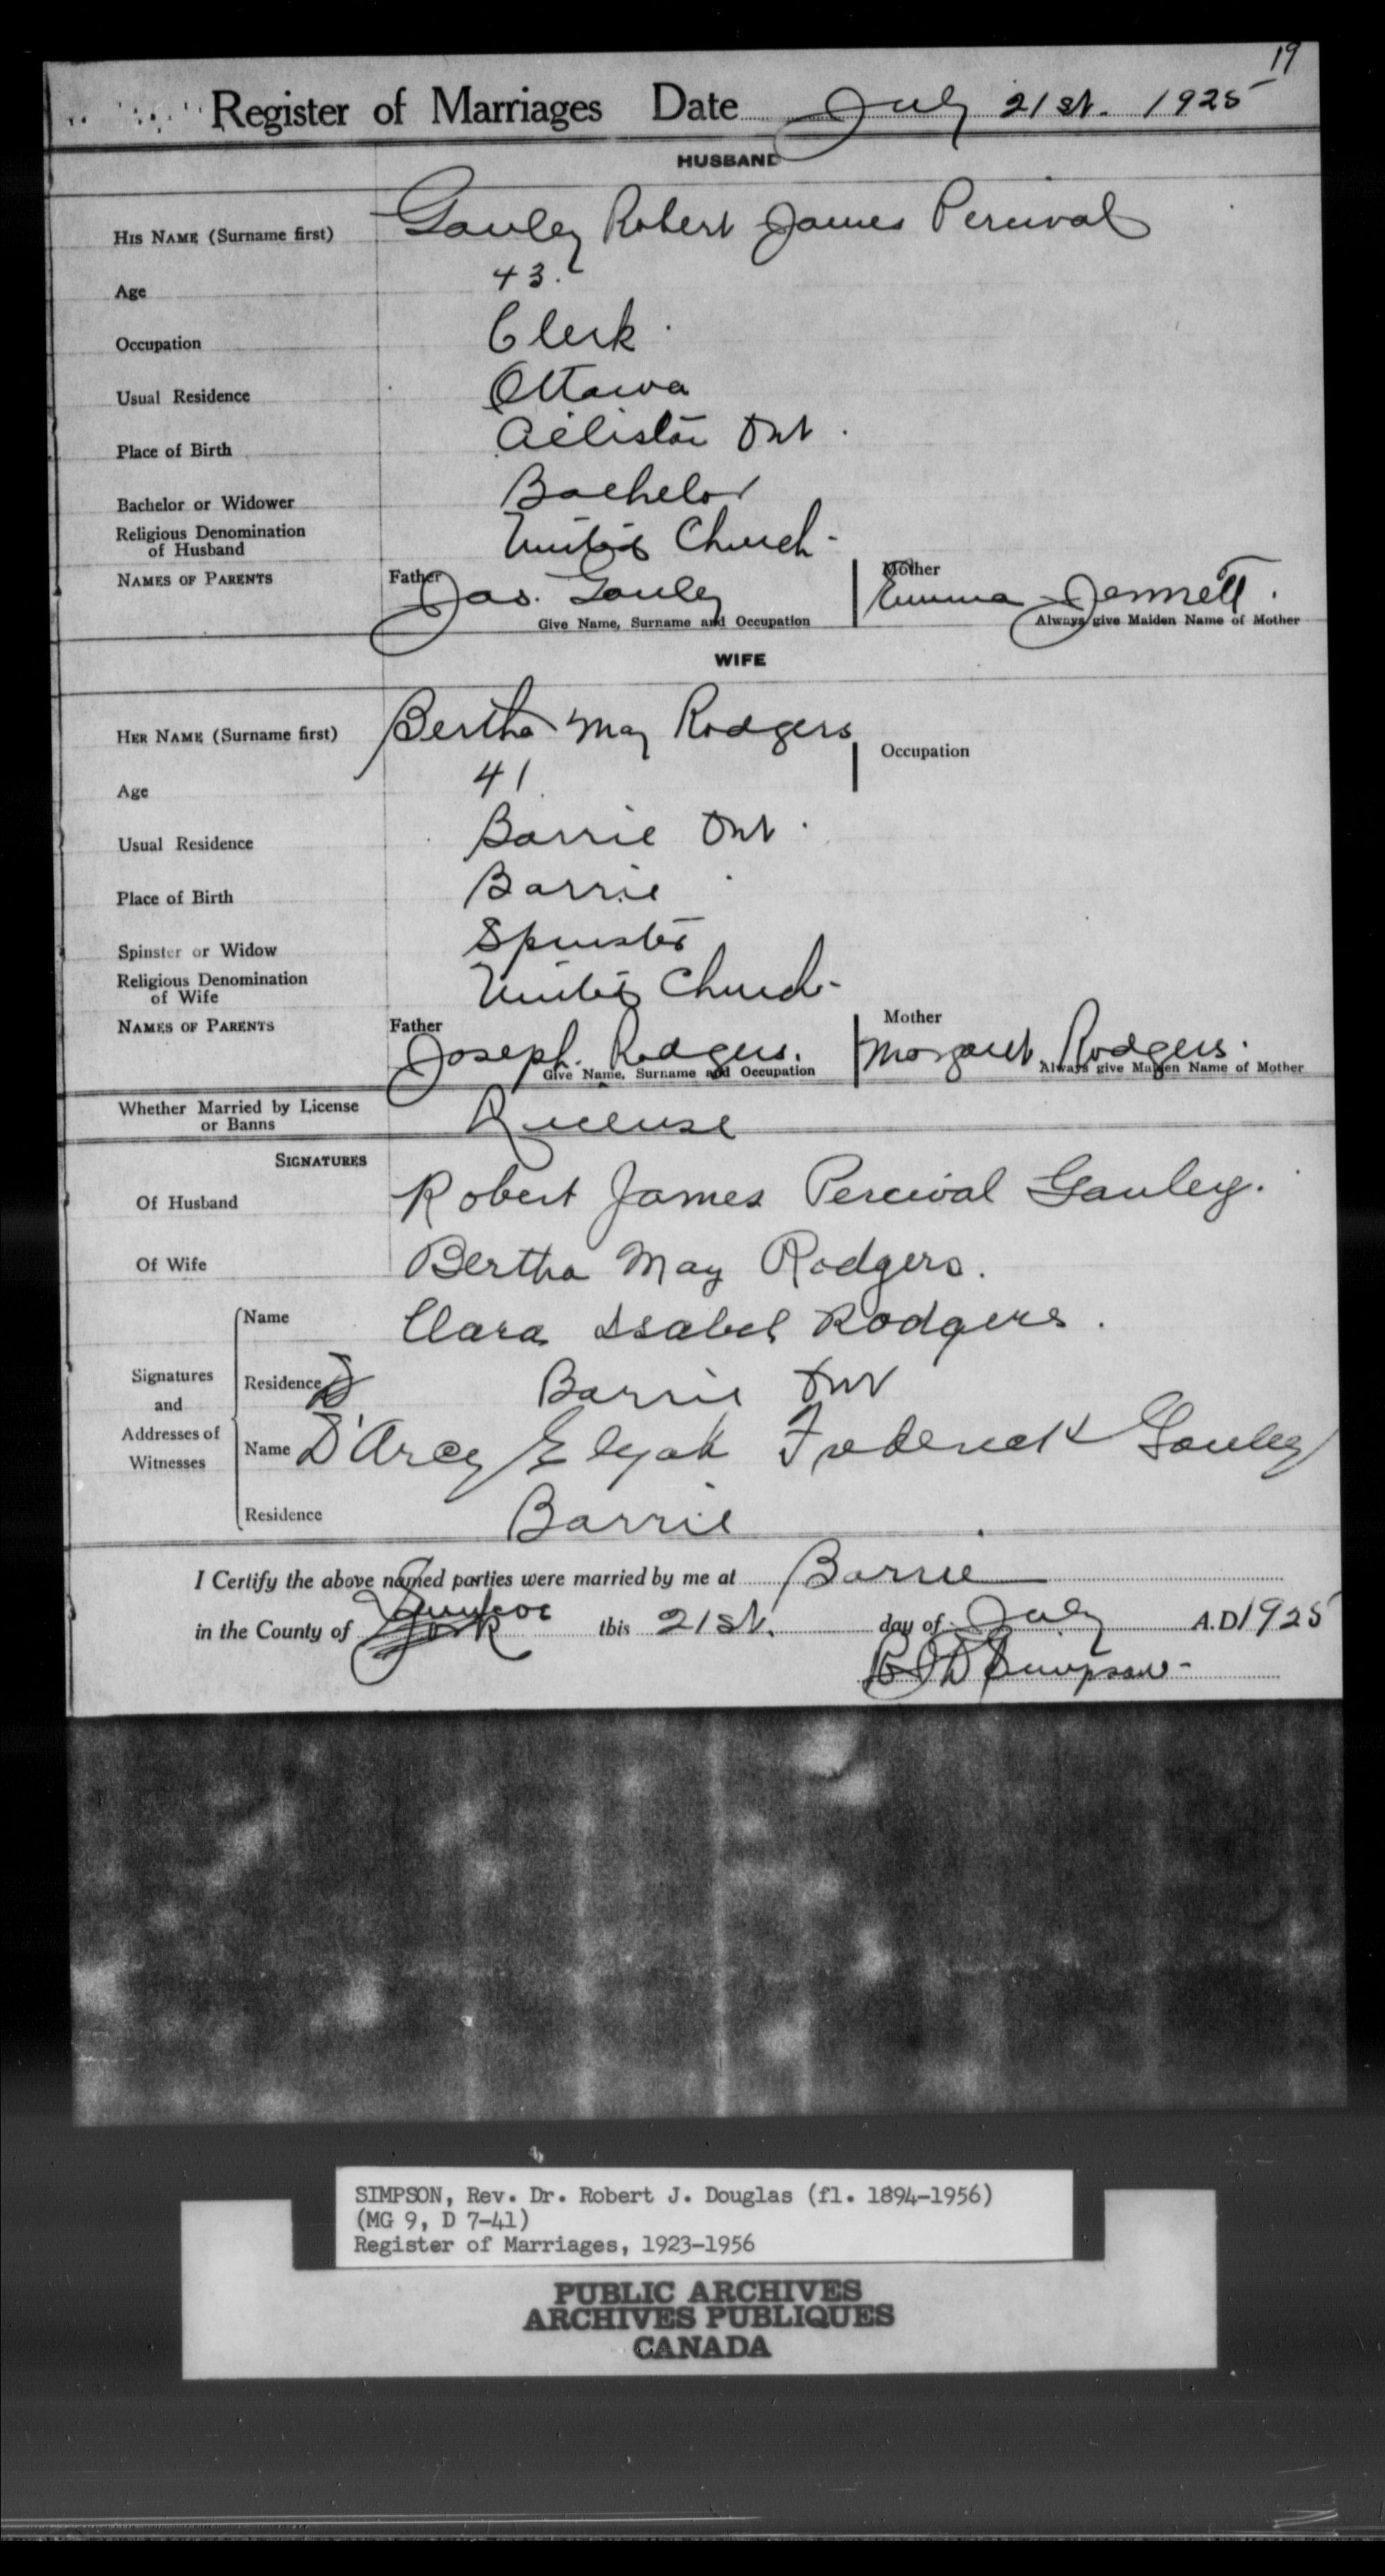 19
Register of Marriages Date July 21st. 1925
HUSBAND
HIS NAME (Surname first) Gauley Robert James Percival
Age 43.
Occupation Clerk
Usual Residence Ottawa
Place of Birth Alliston Ont.
Bachelor or Widower Bachelor
Religious Denomination of Husband United Church-
NAMES OF PARENTS Father Jas. Gauley Mother Emma Jennett.
Give Name, Surname and Occupation Always give Maiden Name of Mother
WIFE
HER NAME (Surname first) Bertha May Rodgers Occupation
Age 41
Usual Residence Barrie Ont.
Place of Birth Barrie
Spinster or Widow Spinster
Religious Denomination of Wife United Church-
NAMES OF PARENTS Father Joseph. Rodgers. Mother Margaret Rodgers.
Give Name, Surname and Occupation Always give Maiden Name of Mother
Whether Married by License or Banns License
SIGNATURES
Of Husband Robert James Percival Gauley.
Of Wife Bertha May Rodgers.
Name Clara Isabel Rodgers.
Signatures and Addresses of Witnesses
Residence Barrie Ont
Name D'Arcy Elijah Frederick Gauley
Residence Barrie
I Certify the above named parties were married by me at Barrie
in the County of York Simcoe this 21st. day of July A.D 1925
R J D Simpson-
SIMPSON, Rev. Dr. Robert J. Douglas (fl. 1894-1956)
(MG 9, D 7-41)
Register of Marriages, 1923-1956
PUBLIC ARCHIVES
ARCHIVES PUBLIQUES
CANADA